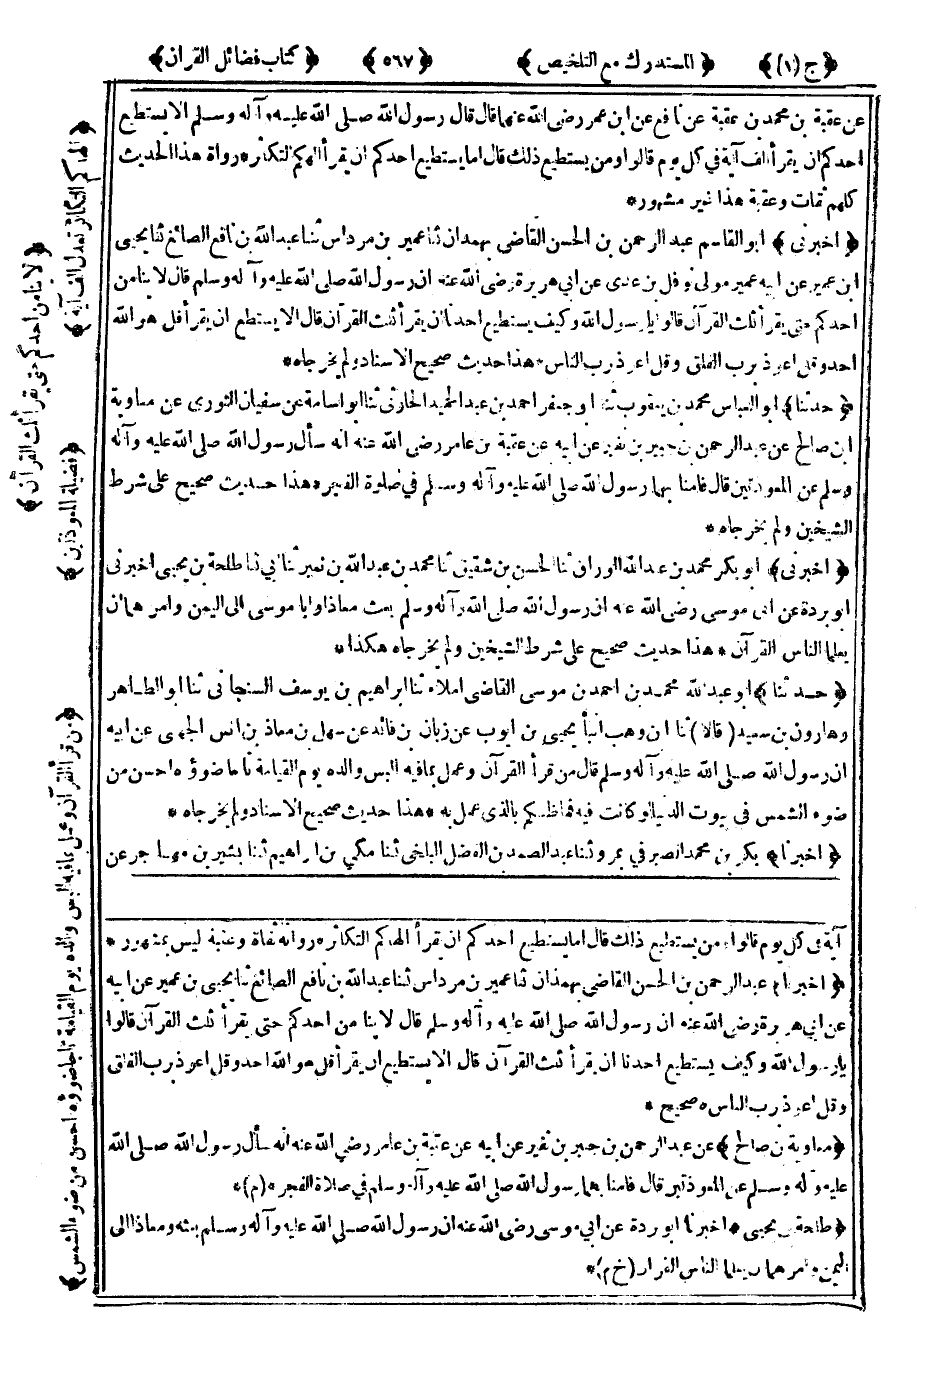 ﴿ ج (١) ﴾ ﴿ المستدرك مع التلخيص ﴾ ﴿ ٥٦٧ ﴾ ﴿ كتاب فضائل القرآن ﴾
عن عقبة بن محمد بن عقبة عن نافع عن ابن عمر رضى الله عنهما قال قال رسول الله صلى الله عليه وآله وسلم الا يستطيع
احدكم ان يقرأ الف آية في كل يوم قالوا ومن يستطيع ذلك قال اما يستطيع احدكم ان يقرأ الهكم التكاثر * رواة هذا الحديث
كلهم ثقات وعقبة هذا غير مشهور *
﴿ اخبرنى ﴾ ابو القاسم عبد الرحمن بن الحسن القاضى بهمدان ثنا عمير بن مرداس ثنا عبد الله بن نافع الصائغ ثنا يحيى
ابن عمير عن ابيه عمير مولى نوفل بن عدى عن ابي هريرة رضى الله عنه ان رسول الله صلى الله عليه وآله وسلم قال لا ينامن
احدكم حتى يقرأ ثلث القرآن قالوا يا رسول الله وكيف يستطيع احدنا ان يقرأ ثلث القرآن قال الا يستطيع ان يقرأ قل هو الله
احد وقل اعوذ برب الفلق وقل اعوذ برب الناس * هذا حديث صحيح الاسناد ولم يخرجاه *
﴿ حدثنا ﴾ ابو العباس محمد بن يعقوب ثنا ابو جعفر احمد بن عبد الحميد الحارثى ثنا ابو اسامة عن سفيان الثورى عن معاوية
ابن صالح عن عبد الرحمن بن جبير بن نفير عن ابيه عن عقبة بن عامر رضى الله عنه انه سأل رسول الله صلى الله عليه وآله
وسلم عن المعوذتين قال فامنا بهما رسول الله صلى الله عليه وآله وسلم في صلوة الفجر * هذا حديث صحيح على شرط
الشيخين ولم يخرجاه *
﴿ اخبرنى ﴾ ابو بكر محمد بن عبد الله الوراق ثنا الحسن بن شقيق ثنا محمد بن عبد الله بن نمير ثنا ابي ثنا طلحة بن يحيى اخبرنى
ابو بردة عن ابى موسى رضى الله عنه ان رسول الله صلى الله وآله وسلم بعث معاذا وابا موسى الى اليمن وامرهما ان
يعلما الناس القرآن * هذا حديث صحيح على شرط الشيخين ولم يخرجاه هكذا *
﴿ حدثنا ﴾ ابو عبد الله محمد بن احمد بن موسى القاضى املاء ثنا ابراهيم بن يوسف السنجانى ثنا ابو الطاهر
وهارون بن سعيد ( قالا ) ثنا ابن وهب انبأ يحيى بن ايوب عن زبان بن فائد عن سهل بن معاذ بن انس الجهنى عن ابيه
ان رسول الله صلى الله عليه وآله وسلم قال من قرأ القرآن وعمل بما فيه البس والده يوم القيامة تاجا ضوؤه احسن من
ضوء الشمس فى بيوت الدنيا لو كانت فيه فما ظنكم بالذى عمل به * هذا حديث صحيح الاسناد ولم يخرجاه *
﴿ اخبرنا ﴾ بكر بن محمد الصيرفي بمرو ثنا عبد الصمد بن الفضل البلخى ثنا مكي بن ابراهيم ثنا بشير بن مهاجر عن
آية فى كل يوم قالوا ومن يستطيع ذلك قال اما يستطيع احدكم ان يقرأ الهكم التكاثر * رواته ثقاة وعقبة ليس بمشهور *
﴿ اخبرنا ﴾ عبد الرحمن بن الحسن القاضى بهمدان ثنا عمير بن مرداس ثنا عبد الله بن نافع الصائغ ثنا يحيى بن عمير عن ابيه
عن ابي هريرة رضى الله عنه ان رسول الله صلى الله عليه وآله وسلم قال لا ينامن احدكم حتى يقرأ ثلث القرآن قالوا
يا رسول الله وكيف يستطيع احدنا ان يقرأ ثلث القرآن قال الا يستطيع ان يقرأ قل هو الله احد وقل اعوذ برب الفلق
وقل اعوذ برب الناس * صحيح *
﴿ معاوية بن صالح ﴾ عن عبد الرحمن بن جبير بن نفير عن ابيه عن عقبة بن عامر رضي الله عنه انه سأل رسول الله صلى الله
عليه وآله وسلم عن المعوذتين قال فامنا بهما رسول الله صلى الله عليه وآله وسلم في صلاة الفجر * (م) *
﴿ طلحة بن يحيى ﴾ اخبرنا ابو بردة عن ابي موسى رضى الله عنه ان رسول الله صلى الله عليه وآله وسلم بعثه ومعاذا الى
اليمن وامرهما ان يعلما الناس القرآن (خ م) *
﴿ الهاكم التكاثر تعدل الف آية ﴾
﴿ لا ينامن احدكم حتى يقرأ ثلث القرآن ﴾
﴿ فضيلة المعوذتين ﴾
﴿ من قرأ القرآن وعمل بما فيه البس والده يوم القيامة تاجا ضوؤه احسن من ضوء الشمس ﴾